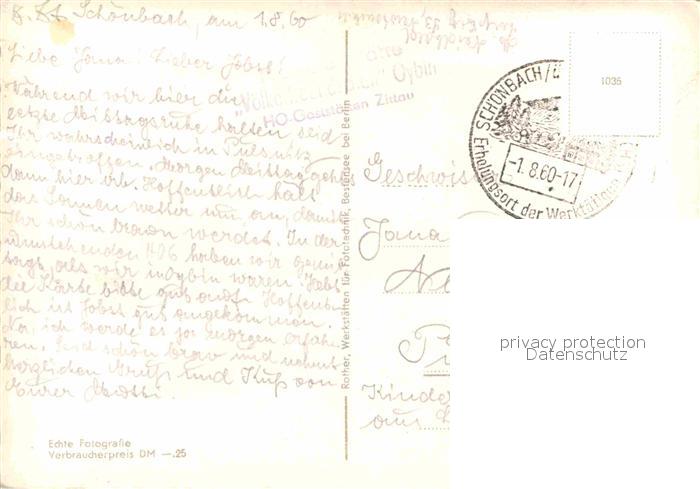 z. Zt. Schönbach, am 1.8.60
Liebe Jana! Lieber Jobst!
Während wir hier die
letzte Mittagsruhe halten seid
Ihr wahrscheinlich in Pulsnitz
eingetroffen. Morgen Mittag geht's
dann hier ab. Hoffentlich hält
das Sonnenwetter nun an, damit
Ihr schön braun werdet. In der
umstehenden HOG haben wir
als wir in Oybin waren. Hebt
die Karte bitte gut auf. Hoffent-
lich ist Jobst gut angekommen.
Na, ich werde es ja morgen erfah-
ren. Seid schön brav und nehmt
herzlichen Gruß und Kuß von
Eurer Mutti.
Echte Fotografie
Verbraucherpreis DM —.25
Rother, Werkstätten für Fototechnik, Bestensee bei Berlin
Oybin
HO-Gaststätten Zittau
SCHÖNBACH/
-1.8.60-17
Erholungsort der Werktätigen
1035
Geschwis
Jana
Kinde
aus
privacy protection
Datenschutz